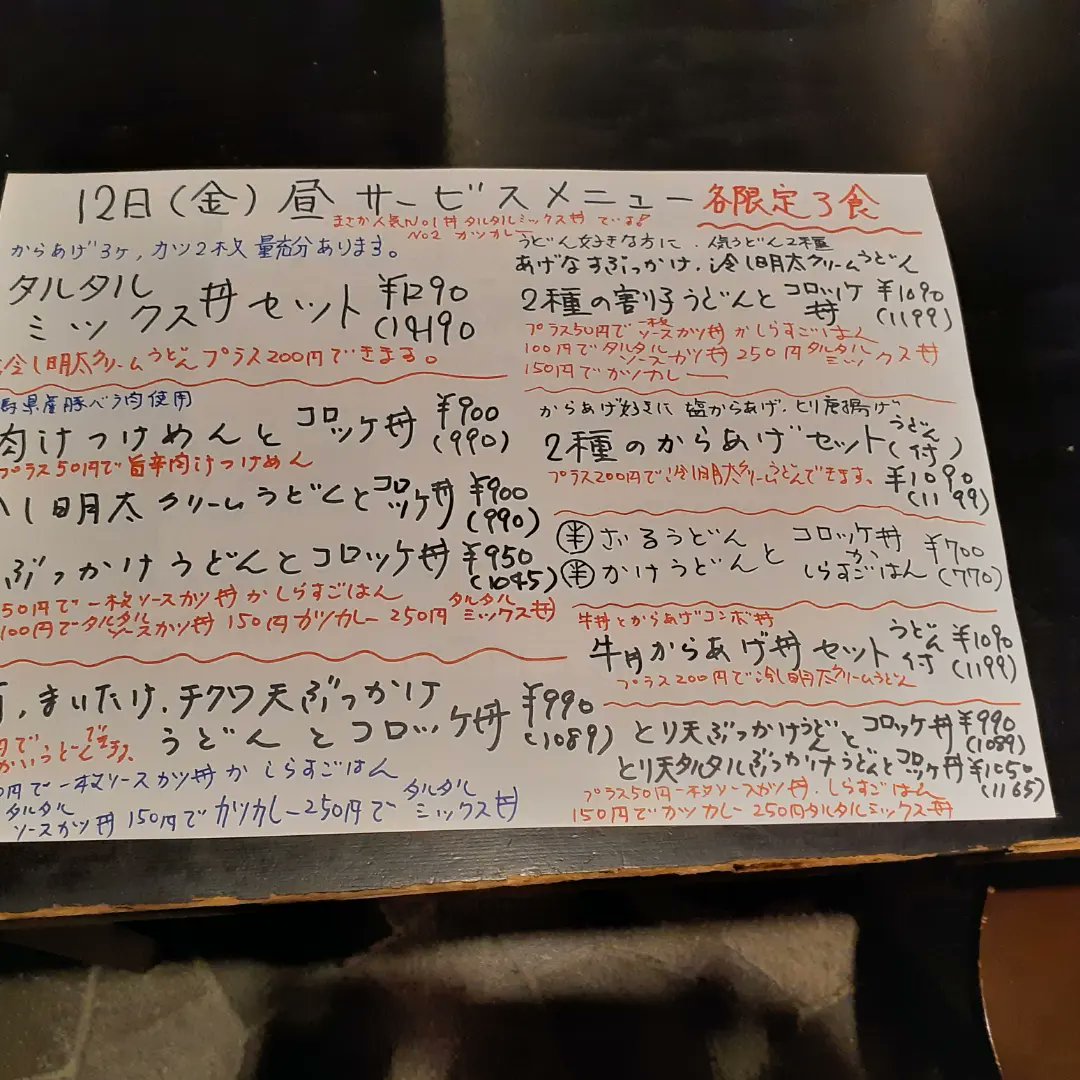 12日(金)昼 サービスメニュー 各限定3食
まさか人気No1丼タルタルミックス丼でいよ!
No2 カツカレー
からあげ3ヶ,カツ2枚 量充分あります。
タルタル
ミックス丼セット ¥1290
(1419)
冷し明太クリームうどん プラス200円できまる。
県産豚バラ肉使用
肉汁つけめんとコロッケ丼 ¥900
(990)
プラス50円で旨辛肉汁つけめん
し明太クリームうどんとコロッケ丼 ¥900
(990)
ぶっかけうどんとコロッケ丼 ¥950
(1045)
50円で一枚ソースカツ丼かしらすごはん
100円でタルタルソースカツ丼 150円カツカレー 250円タルタルミックス丼
,まいたけ,チクワ天ぶっかけ
うどんとコロッケ丼 ¥990
(1089)
円で一枚ソースカツ丼 か しらすごはん
タルタルソースカツ丼 150円でカツカレー 250円でタルタルミックス丼
うどん好きな方に、人気うどん2種
あげなすぶっかけ、冷し明太クリームうどん
2種の割子うどんとコロッケ丼 ¥1090
(1199)
プラス50円で一枚ソースカツ丼かしらすごはん
100円でタルタルソースカツ丼 250円タルタルミックス丼
150円でカツカレー
からあげ好きに 塩からあげ、とり唐揚げ
2種のからあげセット(うどん付)
¥1090
(1199)
プラス200円で冷し明太クリームうどんできます。
半 ざるうどん
半 かけうどん と コロッケ丼かしらすごはん ¥700
(770)
牛丼とからあげコンボ丼
牛丼からあげ丼セット うどん付 ¥1090
(1199)
プラス200円で冷し明太クリームうどん
とり天ぶっかけうどんとコロッケ丼 ¥990
(1089)
とり天タルタルぶっかけうどんとコロッケ丼 ¥1050
(1165)
プラス50円一枚ソースカツ丼、しらすごはん
150円でカツカレー 250円タルタルミックス丼